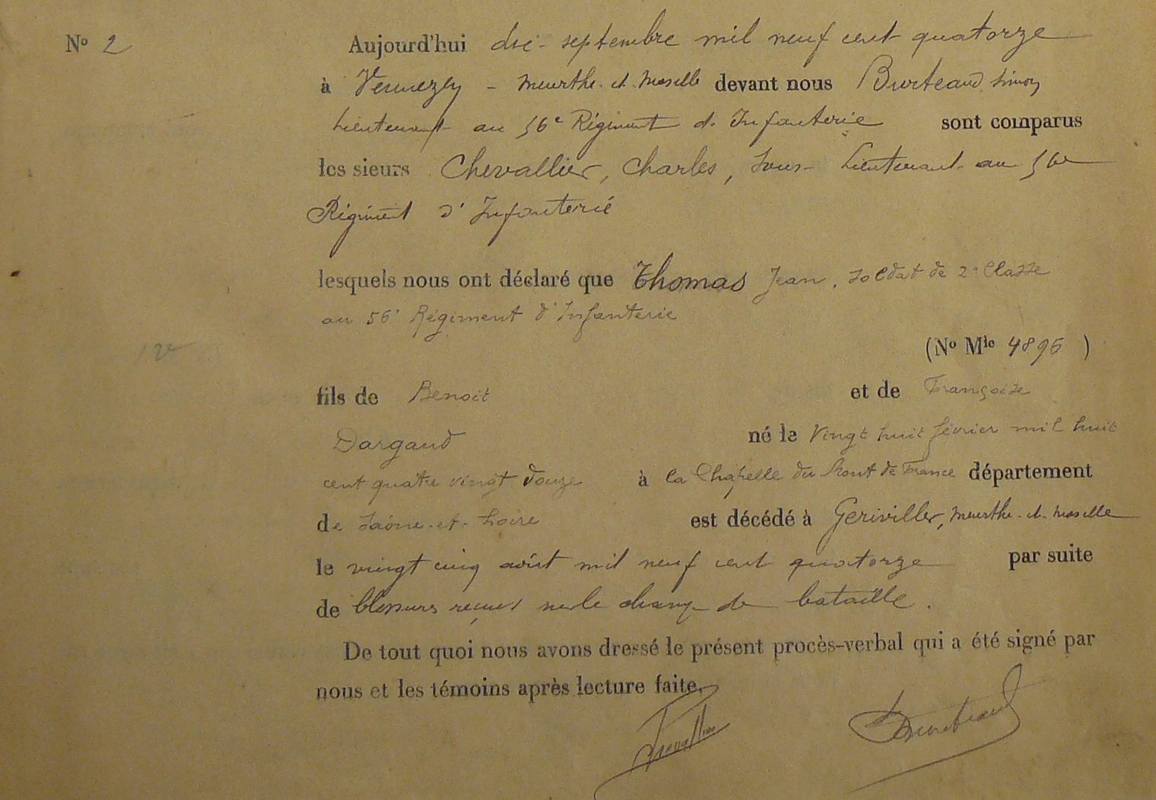 N° 2
Aujourd'hui dix septembre mil neuf cent quatorze
à Vennezey - Meurthe et Moselle devant nous Burteaud Simon
Lieutenant au 56e Régiment d'Infanterie sont comparus
les sieurs Chevallier, Charles, Sous-Lieutenant au 56e
Régiment d'Infanterie
lesquels nous ont déclaré que Thomas Jean, soldat de 2e Classe
au 56e Régiment d'Infanterie
(N° Mle 4896 )
fils de Benoit et de Françoise
Dargaud né le vingt huit février mil huit
cent quatre vingt douze à la Chapelle du Mont de France département
de Saône-et-Loire est décédé à Geriviller, Meurthe et Moselle
le vingt cinq août mil neuf cent quatorze par suite
de blessures reçues sur le champ de bataille.
De tout quoi nous avons dressé le présent procès-verbal qui a été signé par
nous et les témoins après lecture faite.
Chevallier Burteaud